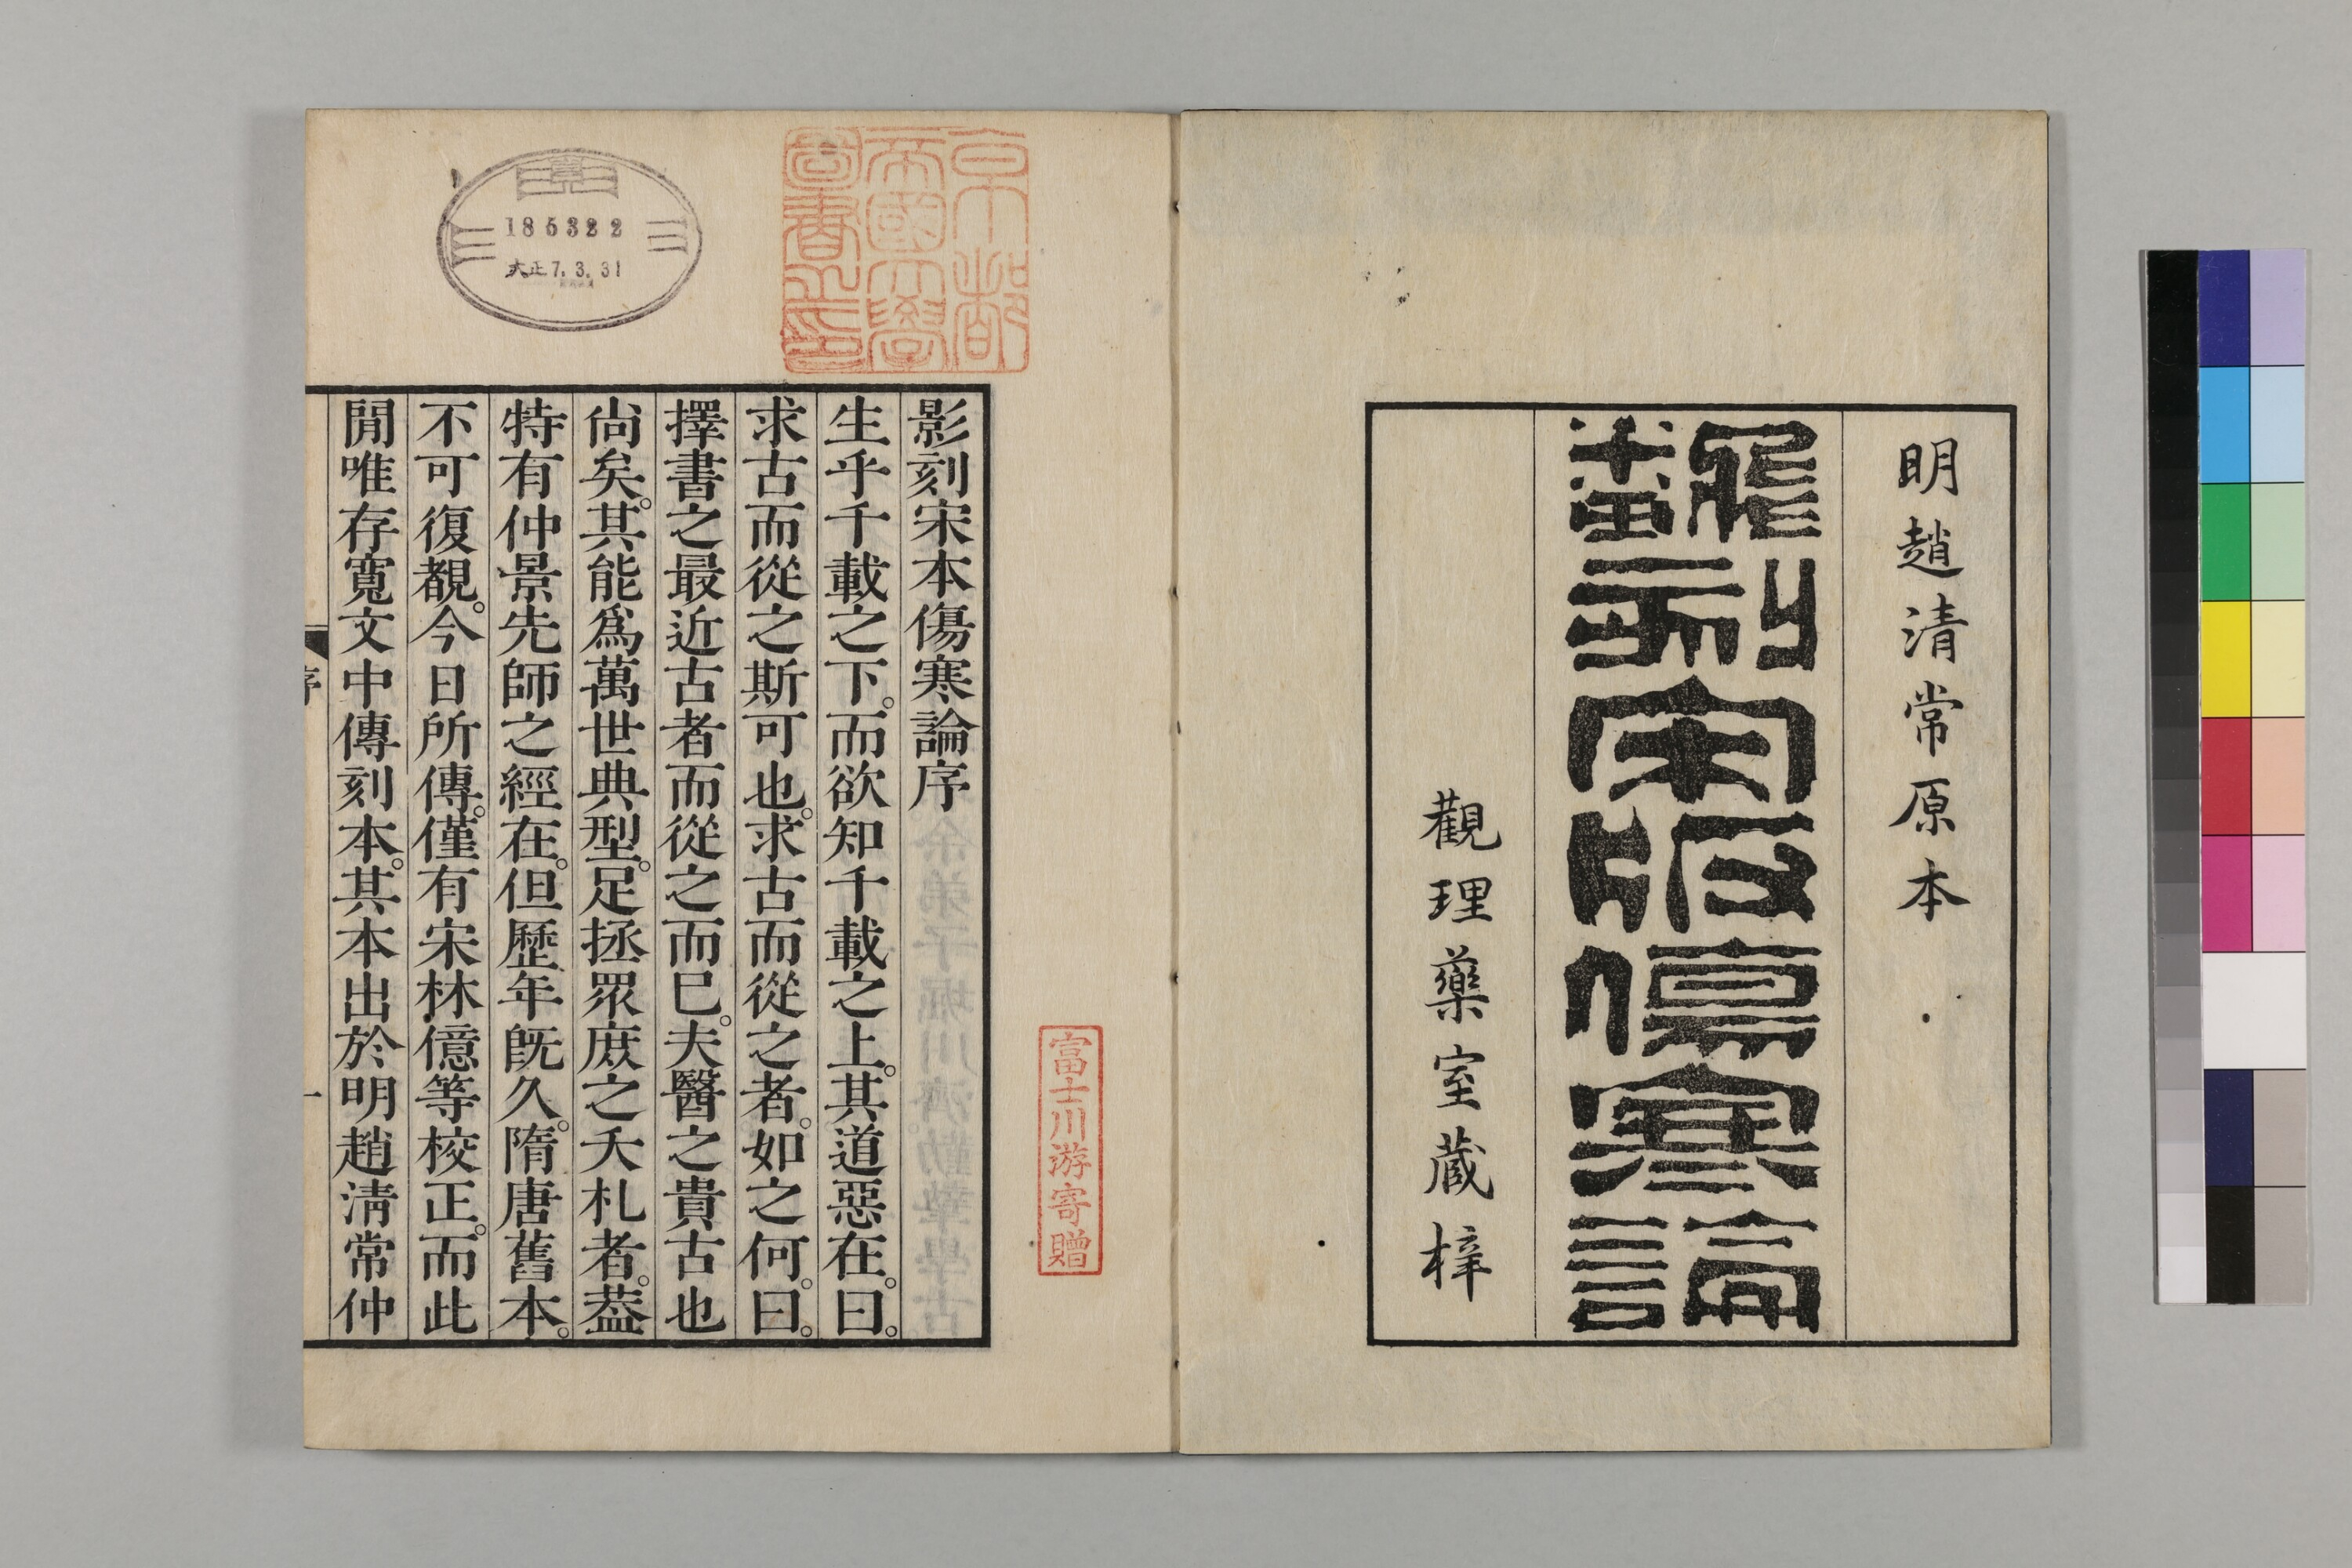 明趙清常原本
飜刻宋版傷寒論
觀理藥室蔵梓
京都
帝國大學
圖書之印
富士川游寄贈
185322
大正7.3.31
影刻宋本傷寒論序
生乎千載之下。而欲知千載之上。其道惡在。曰。
求古而從之斯可也。求古而從之者。如之何。曰。
擇書之最近古者而從之而巳。夫醫之貴古也
尙矣。其能爲萬世典型。足拯眾庻之夭札者。葢
特有仲景先師之經在。但歷年旣久。隋唐舊本。
不可復覩。今日所傳。僅有宋林億等校正。而此
閒唯存寬文中傳刻本。其本出於明趙淸常仲
序
一